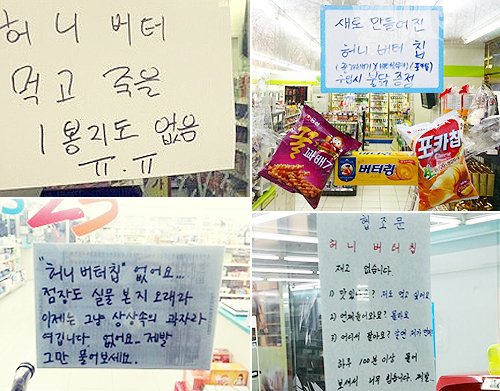 허니 버터
먹고 죽을
1봉지도 없음
ㅠ.ㅠ
새로 만들어진
허니 버터 칩
불닭 증정
꿀
꽈배기
버터링
포카칩
25
"허니 버터칩" 없어요...
점장도 실물 본 지 오래라
이제는 그냥 상상속의 과자라
여깁니다. 없어요.. 제발
그만 물어보세요.
협조문
허니 버터칩
재고 없습니다.
1) 맛있 ? 저도 먹고 싶어요
2) 언제들어와요? 몰라요
3) 어디서 팔아요?
하루 100분 이상 물어
보셔서 너무 힘듭니다. 제발